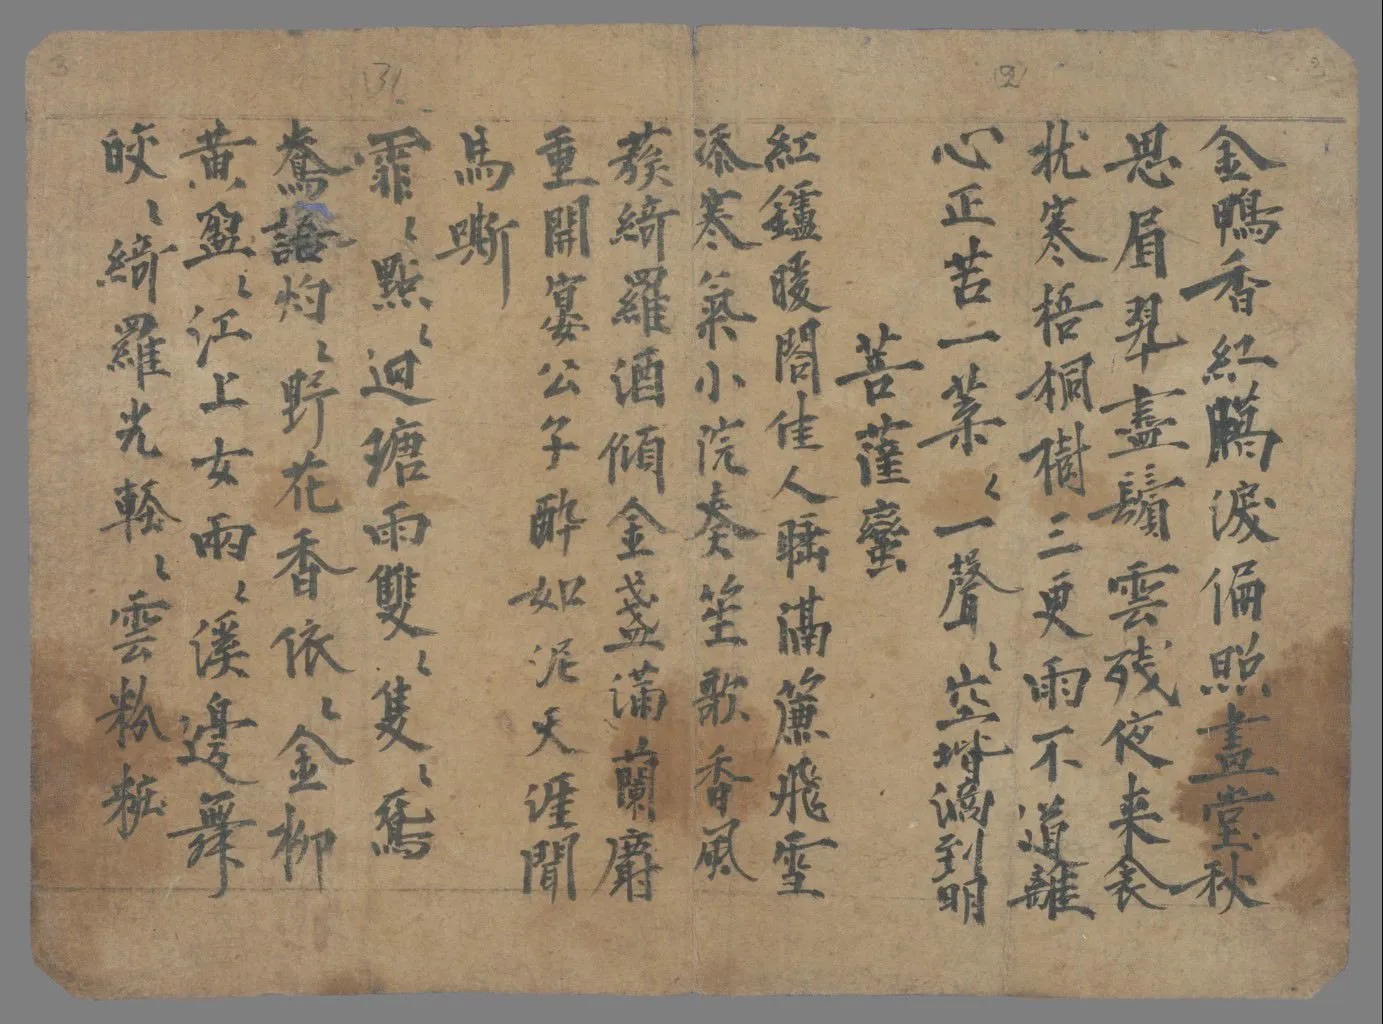 金鴨香紅䗶淚偏照畫堂秋
思眉翠盡鬢雲殘夜来衾
枕寒梧桐樹三更雨不道離
心正苦一葉〻一聲〻空堦滴到明
菩薩蠻
紅鑪暖閣佳人睡滿簾飛雪
添寒氣小院奏笙歌香風
蔟綺羅酒傾金盞滿蘭麝
重開宴公子醉如泥天涯聞
馬嘶
霏〻點〻迴塘雨雙〻隻〻鴛
鴦語灼〻野花香依〻金柳
黃盈〻江上女兩〻溪邊舞
皎〻綺羅光輕〻雲粉粧